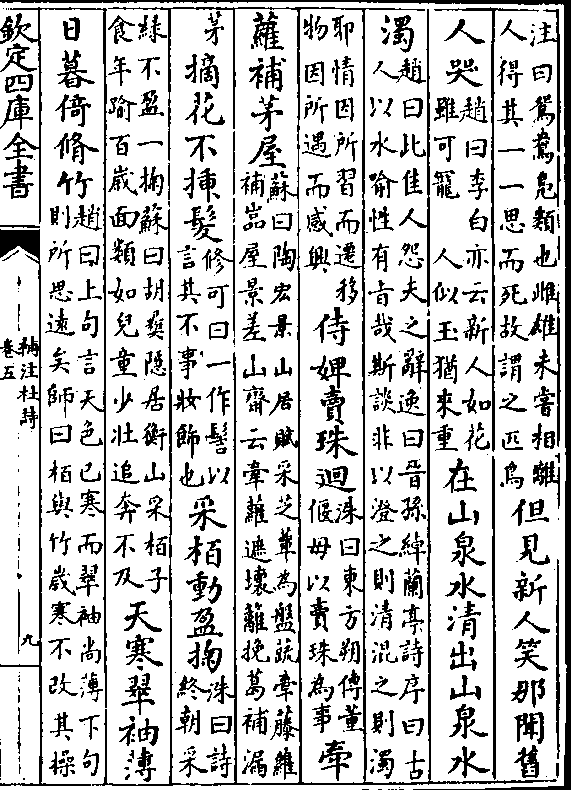 注曰鴛鴦鳧類也雌雄未嘗相離
人得其一一思而死故謂之匹鳥
但見新人笑那聞舊
人哭
趙曰李白亦云新人如花
雖可寵 人似玉猶來重
在山泉水清出山泉水
濁
趙曰此佳人怨夫之辭逸曰晉孫綽蘭亭詩序曰古
人以水喻性有旨哉斯談非以澄之則清混之則濁
耶情因所習而遷移
物因所遇而感興
侍婢賣珠迴
洙曰東方朔傳董
偃母以賣珠為事
牽
蘿補茅屋
蘇曰陶宏景山居賦采芝葦為盤蔬牽藤蘿
補嵓屋景差山齋云牽蘿遮壞籬挽葛補漏
茅
摘花不揷髮
修可曰一作髻以
言其不事妝飾也
采栢動盈掬
洙曰詩
終朝采
緑不盈一掬蘇曰胡㷼隱居衡山采栢子
食年踰百歲面類如兒童少壯追奔不及
天寒翠袖薄
日暮倚脩竹
趙曰上句言天色已寒而翠袖尚薄下句
則所思逺矣師曰栢與竹歲寒不改其操
欽定四庫全書
補注杜詩
卷五
九